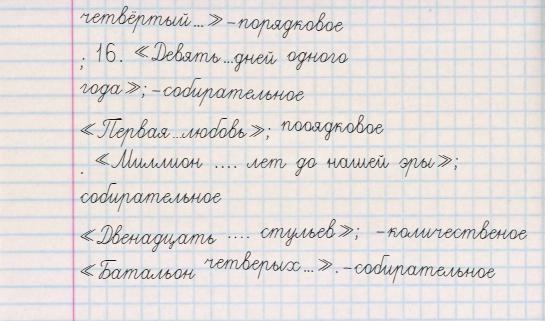 четвёртый...» -порядковое
; 16. «Девять...дней одного
года»; -собирательное
«Первая...любовь»; пооядковое
. «Миллион .... лет до нашей эры»;
собирательное
«Двенадцать .... стульев»; -количественое
«Батальон четверых...». -собирательное